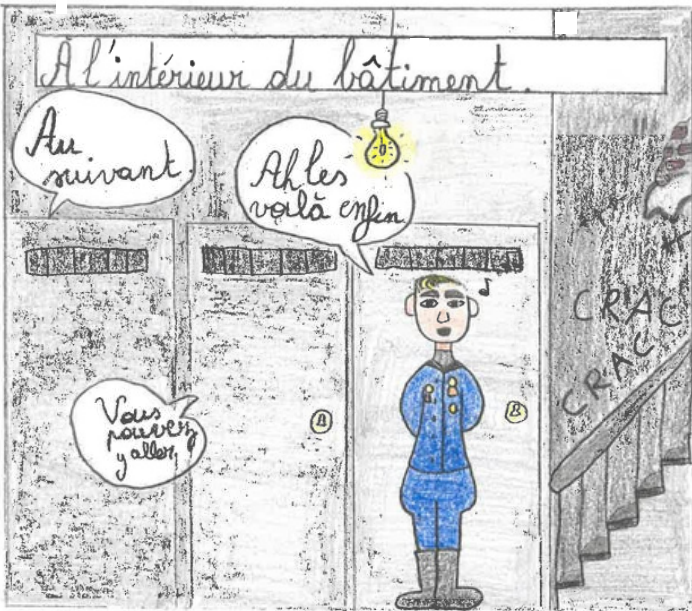 À l'intérieur du bâtiment.
Au
suivant.
Ah les
voilà enfin.
Vous
pouvez
y aller
CRAC
CRAC